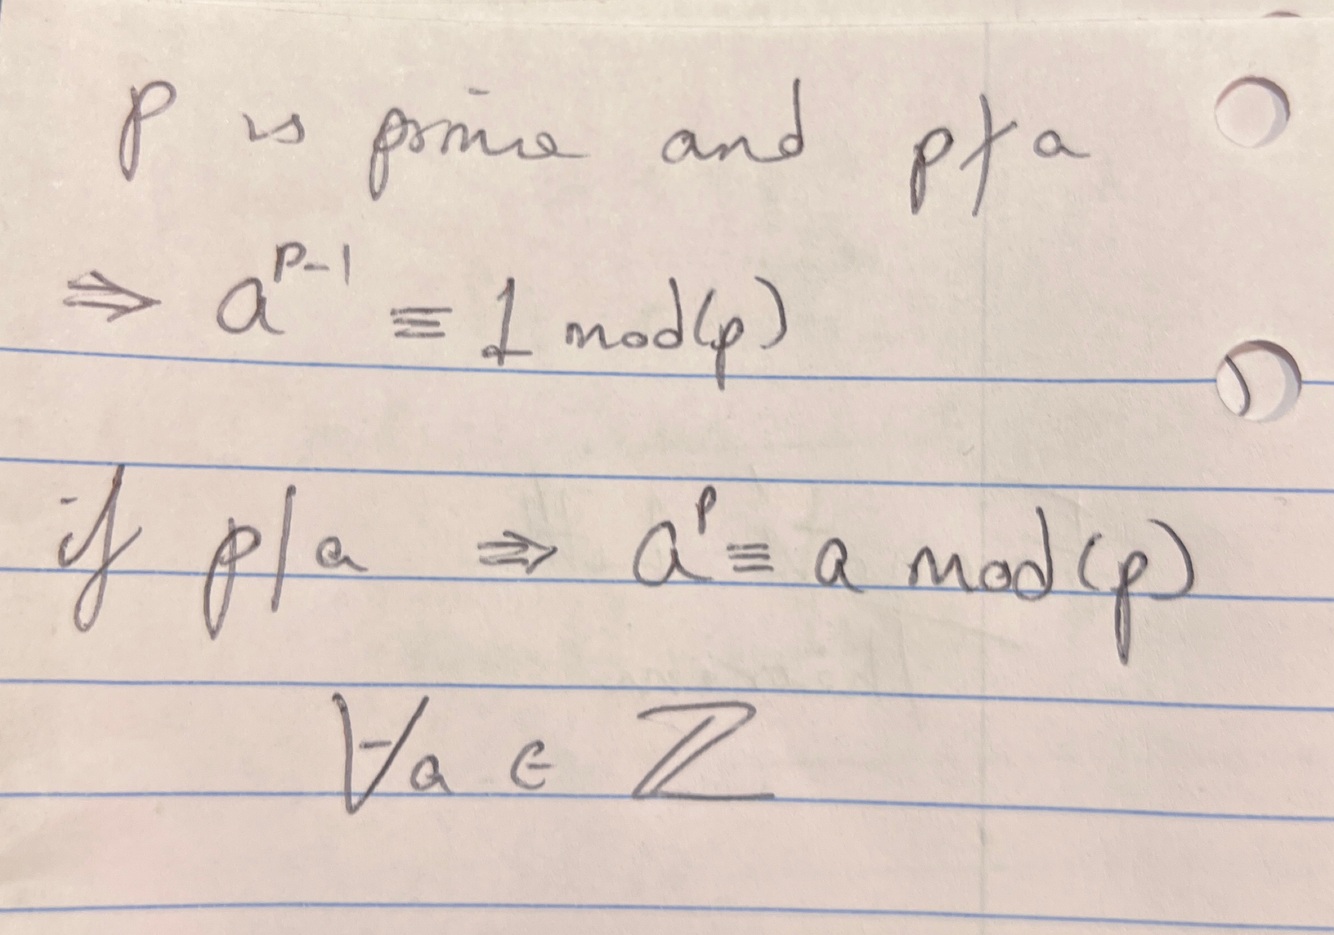 p is prime and p∤a
⇒ a^{p-1} ≡ 1 mod(p)
if p|a ⇒ a^p ≡ a mod(p)
∀a ∈ ℤ